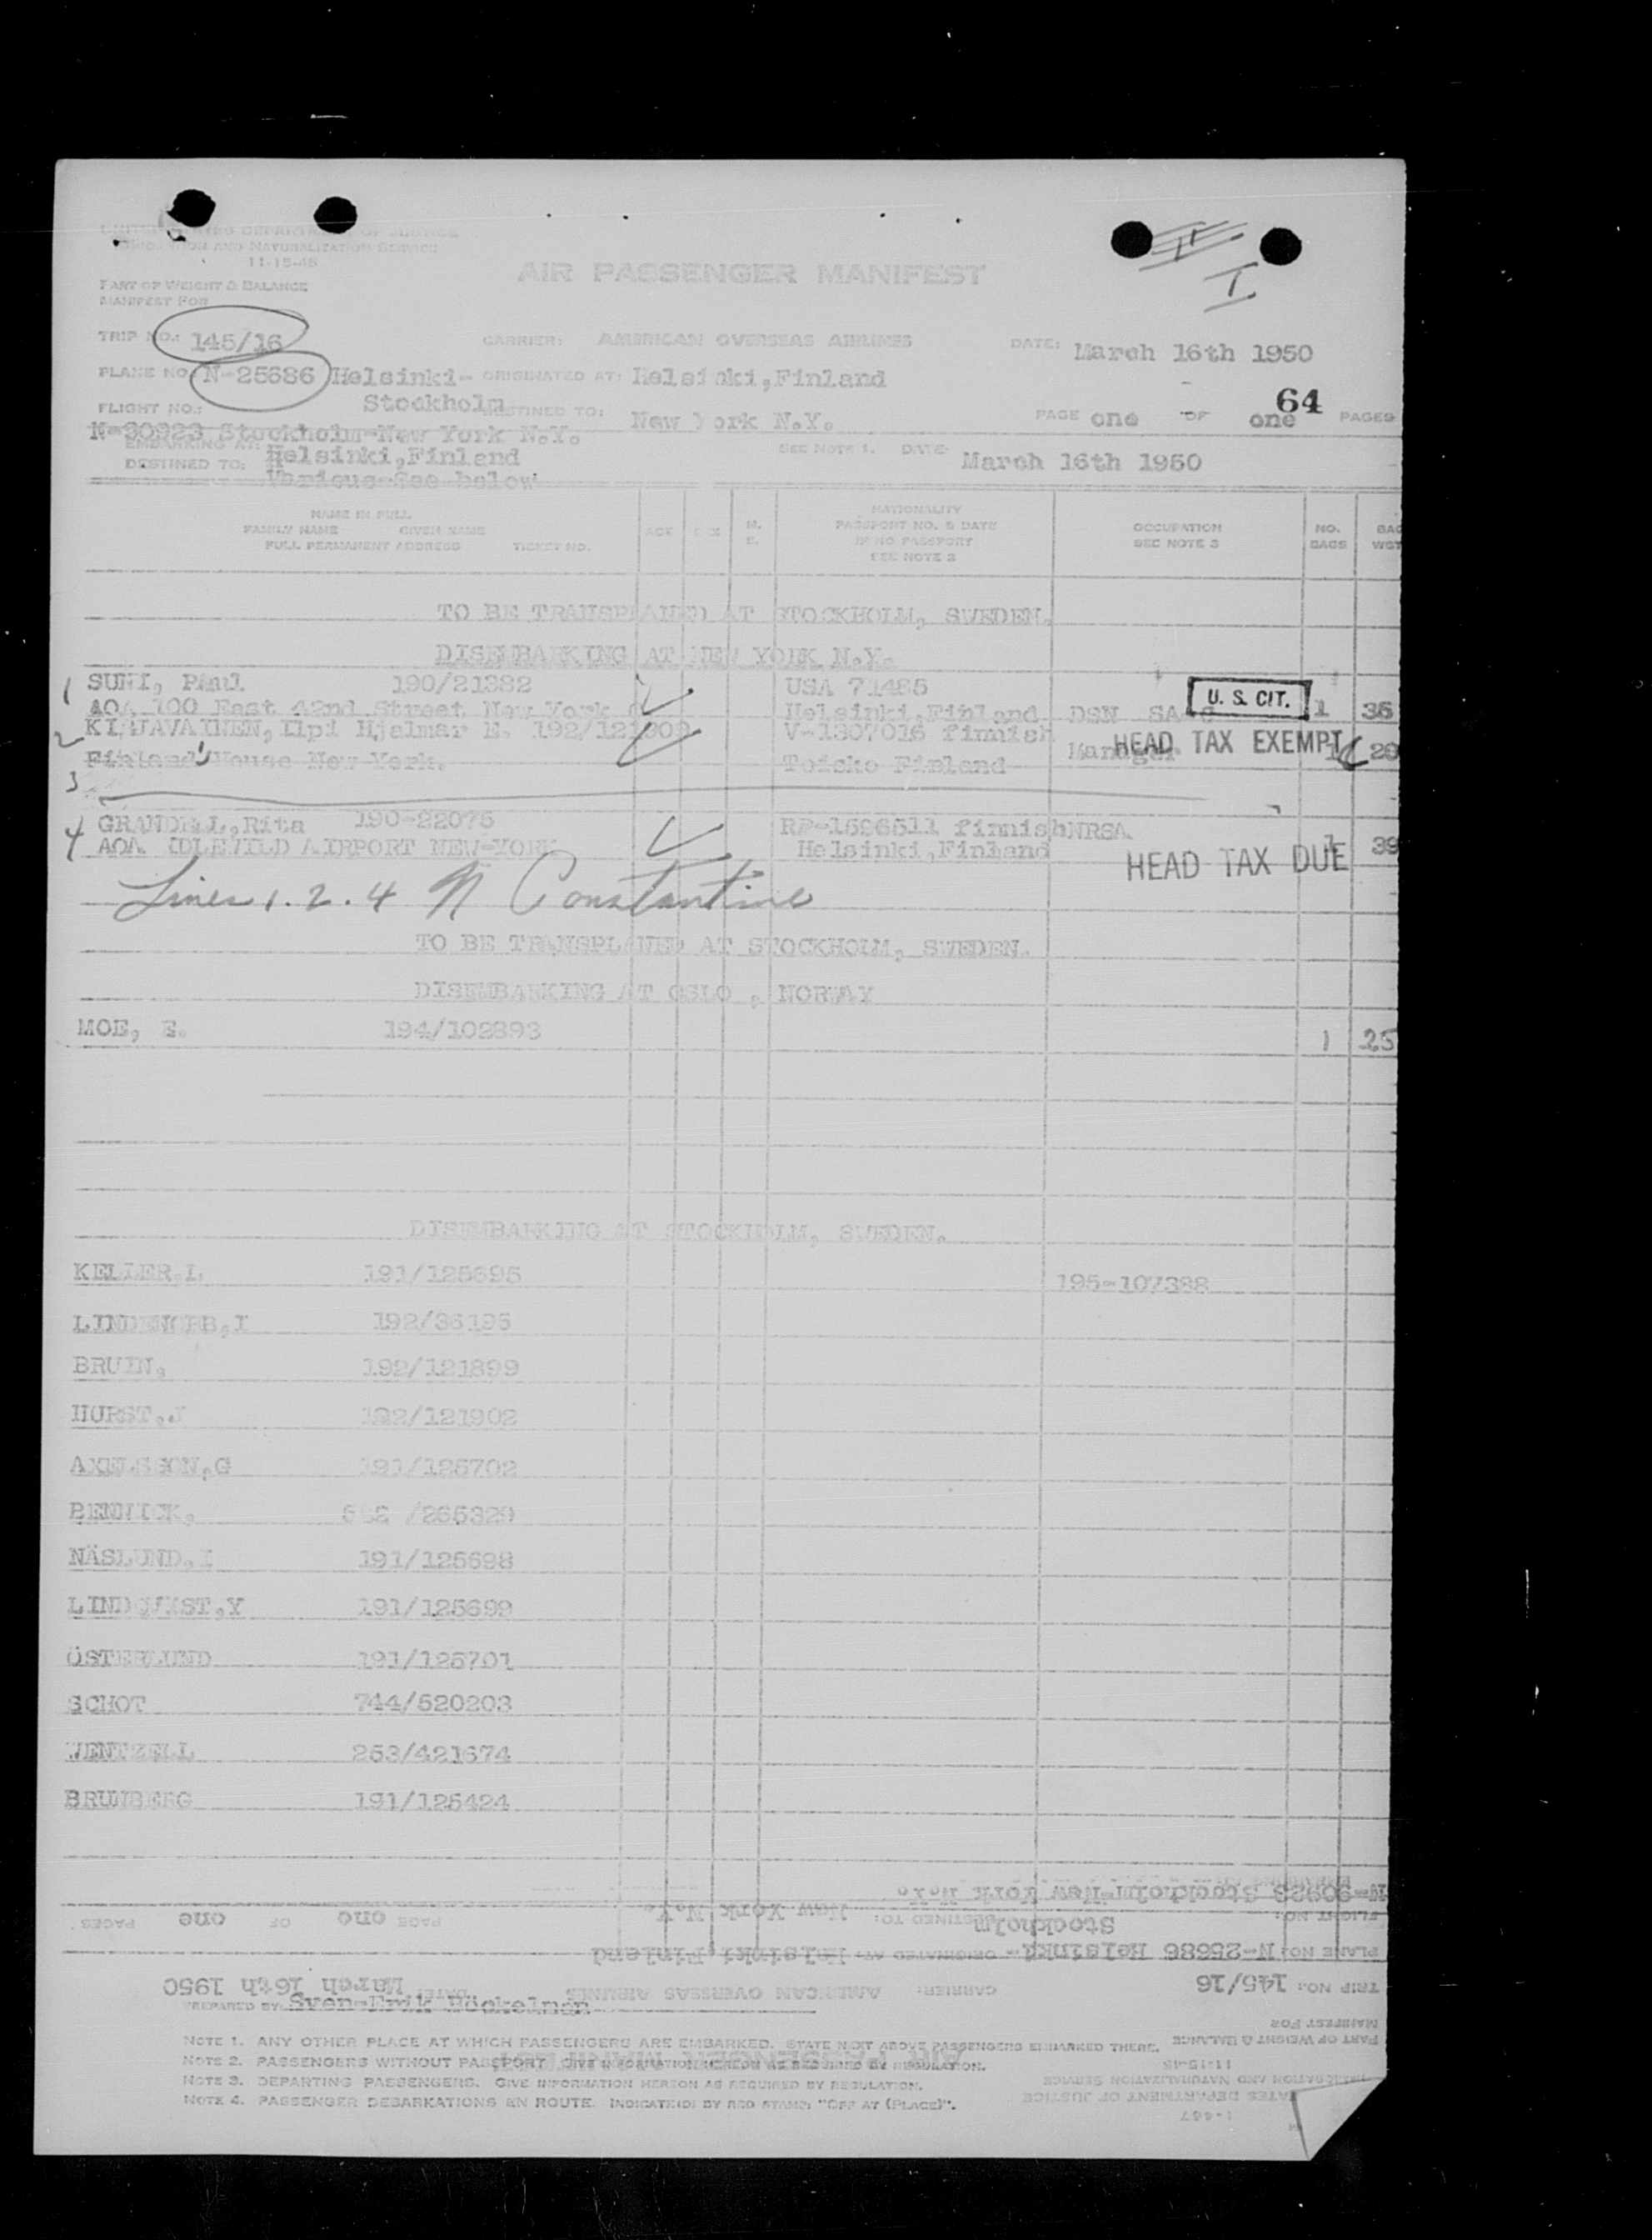 UNITED STATES DEPARTMENT OF JUSTICE
IMMIGRATION AND NATURALIZATION SERVICE
11-15-45
PART OF WEIGHT & BALANCE
MANIFEST FOR
AIR PASSENGER MANIFEST
I
TRIP NO.: 145/16 CARRIER: AMERICAN OVERSEAS AIRLINES DATE: March 16th 1950
PLANE NO. N-25686 Helsinki- ORIGINATED AT: Helsinki,Finland
Stockholm
FLIGHT NO.: DESTINED TO: New York N.Y. PAGE one OF one 64 PAGES
N-90923 Stockholm-New York N.Y.
EMBARKING AT: Helsinki,Finland SEE NOTE 1. DATE: March 16th 1950
DESTINED TO: Various-See below
NAME IN FULL
FAMILY NAME GIVEN NAME
FULL PERMANENT ADDRESS TICKET NO.
AGE SEX M. S.
NATIONALITY
PASSPORT NO. & DATE
IF NO PASSPORT
SEE NOTE 2
OCCUPATION
SEE NOTE 3
NO.
BAGS
BAG
WGT
TO BE TRANSPLANED AT STOCKHOLM, SWEDEN.
DISEMBARKING AT NEW YORK N.Y.
1 SUNI, Paul 190/21382 USA 71485 U. S. CIT.
AOA 100 East 42nd Street New York Helsinki,Finland DSN 1 35
2 KIUJAVAINEN, Ilpi Hjalmar E. 192/121909 V-1307016 finnish
Finland House New York. Toisko Finland Manager HEAD TAX EXEMPT 20
3
4 GRANDELL,Rita 190-22075 RP-1596511 finnish NRSA
AOA IDLEWILD AIRPORT NEW-YORK Helsinki,Finland HEAD TAX DUE 1 39
Lines 1.2.4 N Constantine
TO BE TRANSPLANED AT STOCKHOLM, SWEDEN.
DISEMBARKING AT OSLO , NORWAY
MOE, E. 194/102893 1 25
DISEMBARKING AT STOCKHOLM, SWEDEN.
KELLER.I. 191/125695 195-107388
192/36195
BRUUN, 192/121899
HURST,J 192/121902
AXELSSON,G 191/125702
BENNICK, /265329
NÄSLUND,I 191/125698
LINDQVIST,Y 191/125699
ÖSTERLUND 191/125701
SCHOT 744/520203
WENTZELL 253/421674
BRUNBERG 191/125424
N-90923 Stockholm-New York N.Y.
FLIGHT NO: Stockholm DESTINED TO: New York N.Y. PAGE one OF one PAGES.
PLANE NO: N-25686 Helsinki- ORIGINATED AT: Helsinki,Finland
TRIP NO.: 145/16 CARRIER: AMERICAN OVERSEAS AIRLINES DATE: March 16th 1950
PREPARED BY: Sven-Erik Böckelman
PART OF WEIGHT & BALANCE
MANIFEST FOR
NOTE 1. ANY OTHER PLACE AT WHICH PASSENGERS ARE EMBARKED. STATE NEXT ABOVE PASSENGERS EMBARKED THERE.
NOTE 2. PASSENGERS WITHOUT PASSPORT GIVE INFORMATION HEREON AS REQUIRED BY REGULATION.
NOTE 3. DEPARTING PASSENGERS. GIVE INFORMATION HEREON AS REQUIRED BY REGULATION.
NOTE 4. PASSENGER DEBARKATIONS EN ROUTE. INDICATED BY RED STAMP "OFF AT (PLACE)".
AIR PASSENGER MANIFEST
11-15-45
IMMIGRATION AND NATURALIZATION SERVICE
STATES DEPARTMENT OF JUSTICE
I-467